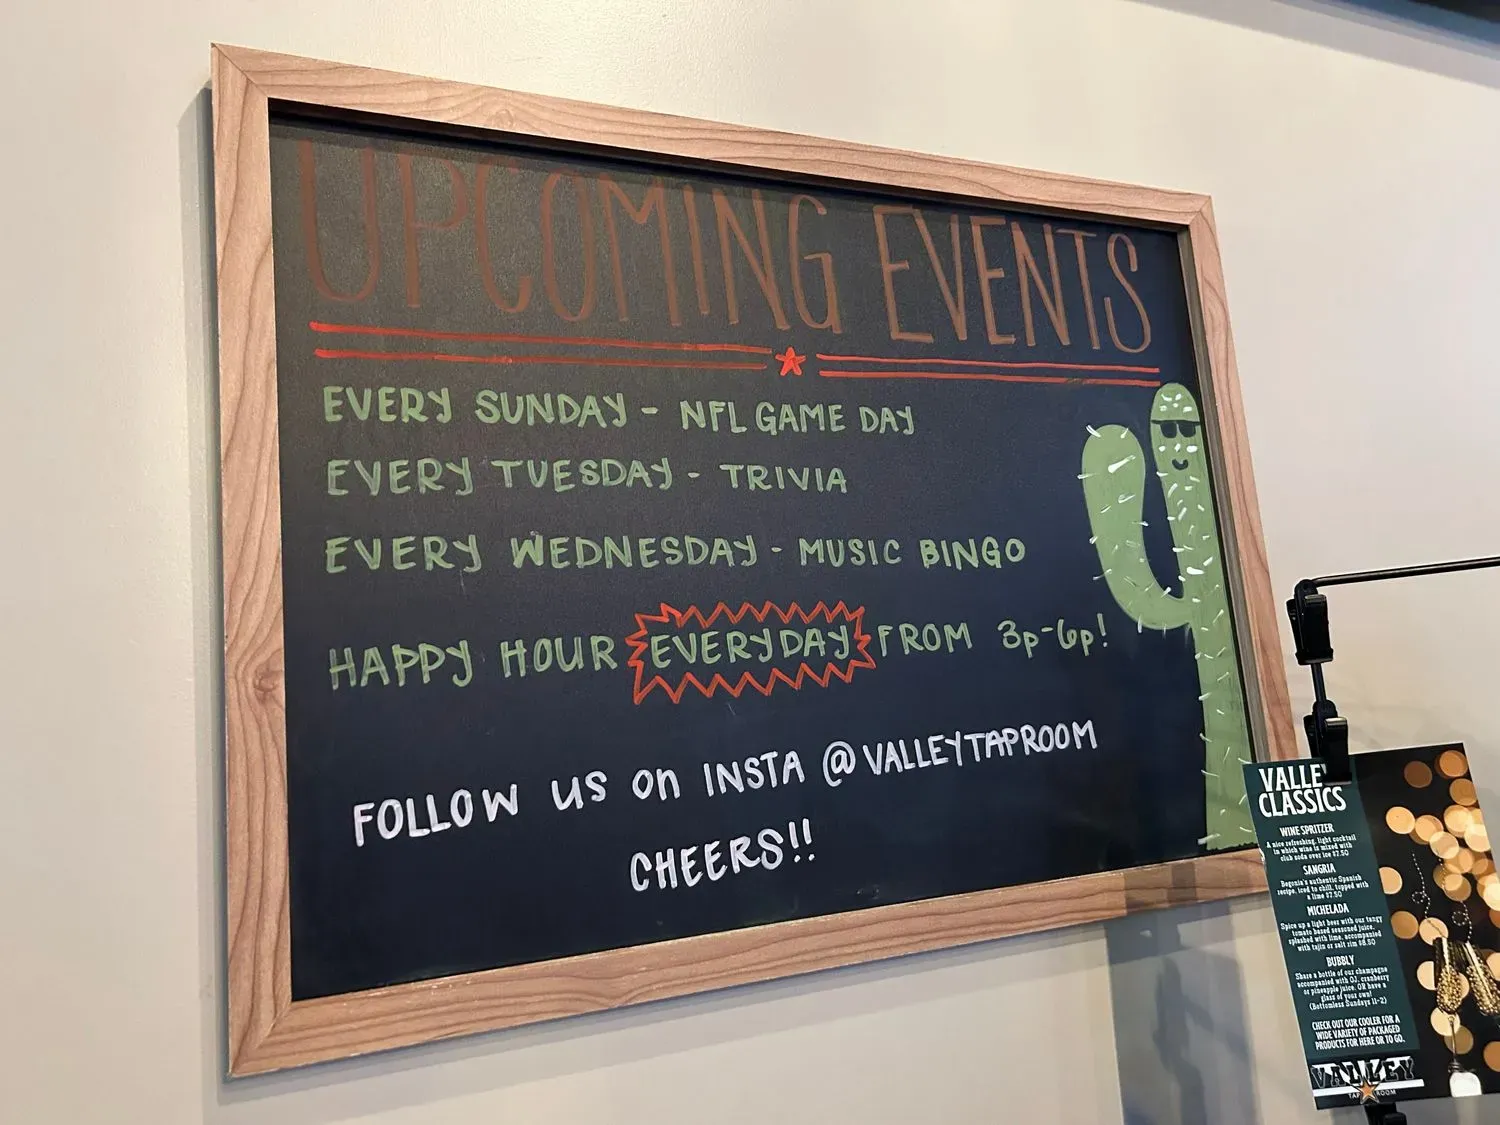 UPCOMING EVENTS
EVERY SUNDAY - NFL GAME DAY
EVERY TUESDAY - TRIVIA
EVERY WEDNESDAY - MUSIC BINGO
HAPPY HOUR EVERYDAY FROM 3p-6p!
FOLLOW US on INSTA @VALLEYTAPROOM
CHEERS!!
VALLEY
CLASSICS
WINE SPRITZER
A nice refreshing, light cocktail
in which wine is mixed with
club soda over ice $7.50
SANGRIA
Begonia's authentic Spanish
recipe, iced to chill, topped with
a lime $7.50
MICHELADA
Spice up a light beer with our tangy
tomato based seasoned juice,
splashed with lime, accompanied
with tajin or salt rim $8.50
BUBBLY
Share a bottle of our champagne
accompanied with OJ, cranberry
or pineapple juice, OR have a
glass of your own!
(Bottomless Sundays 11-2)
CHECK OUT OUR COOLER FOR A
WIDE VARIETY OF PACKAGED
PRODUCTS FOR HERE OR TO GO.
VALLEY
TAP ROOM